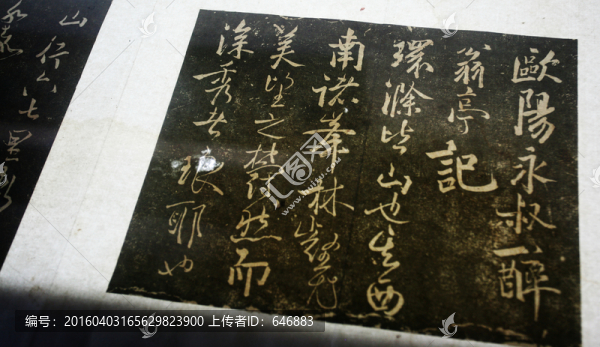 歐陽永叔醉
翁亭記
環滁皆山也其西
南諸峯林壑尤
美望之蔚然而
深秀者琅耶也
山行六七里
汇图网
编号：20160403165629823900 上传者ID：646883